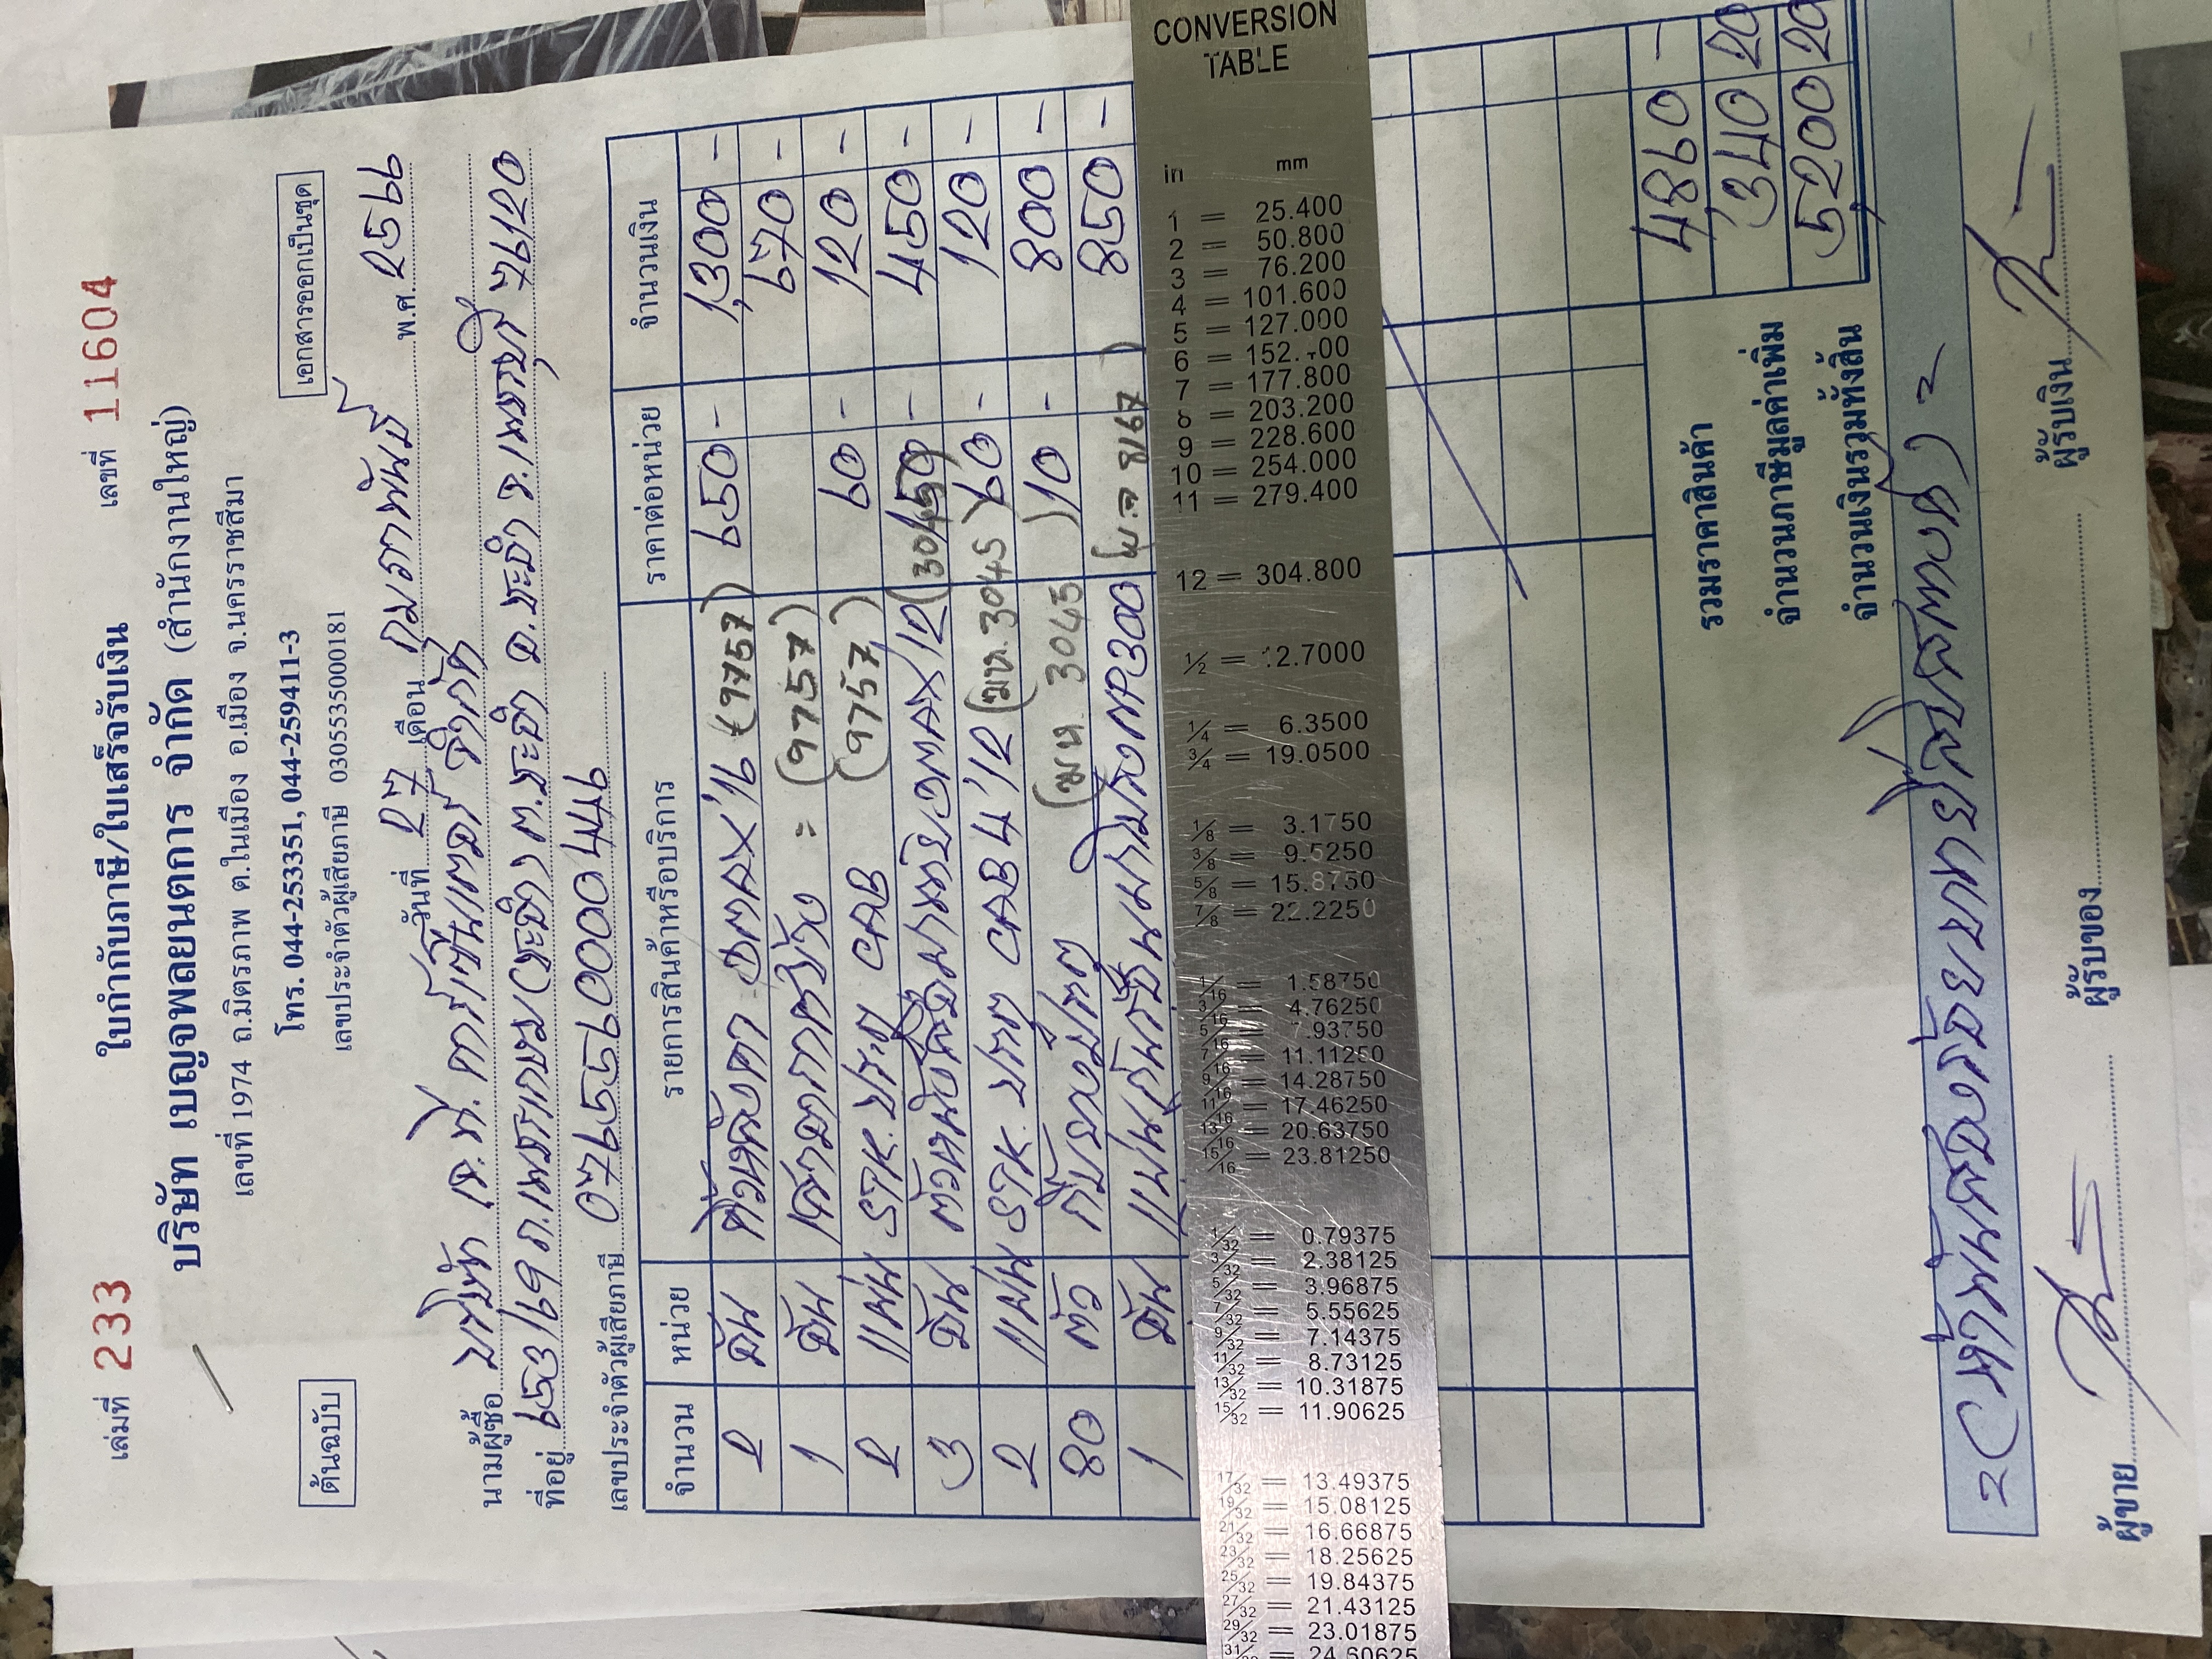 เล่มที่ 233 ใบกำกับภาษี/ใบเสร็จรับเงิน เลขที่ 11604
บริษัท เบญจพลยนตการ จำกัด (สำนักงานใหญ่)
เลขที่ 1974 ถ.มิตรภาพ ต.ในเมือง อ.เมือง จ.นครราชสีมา
ต้นฉบับ โทร. 044-253351, 044-259411-3 เอกสารออกเป็นชุด
เลขประจำตัวผู้เสียภาษี 0305535000181
วันที่ 27 เดือน กุมภาพันธ์ พ.ศ. 2566
นามผู้ซื้อ บริษัท จำกัด
ที่อยู่ 653/69 ถ. ต.ชะอำ อ.ชะอำ จ.เพชรบุรี 76120
เลขประจำตัวผู้เสียภาษี 0765597000446
จำนวน หน่วย รายการสินค้าหรือบริการ ราคาต่อหน่วย จำนวนเงิน
2 อัน คิ้วหลังคา DMAX'16 (9757) 650 - 1,300 -
1 อัน เสาอากาศข้าง = (9757) 670 -
2 แผ่น STK. ประตู CAB (9757) 60 - 120 -
3 อัน DMAX'12 (3045) 150 - 450 -
2 แผ่น STK. ประตู CAB4'12 (ฒห. 3045) 60 - 120 -
80 ตัว กิ๊บยางประตู (ฒห. 3045) 10 - 800 -
1 อัน NP300 8167) 850 -
รวมราคาสินค้า 4860 -
จำนวนภาษีมูลค่าเพิ่ม 340 20
จำนวนเงินรวมทั้งสิ้น 5,200 20
= (ห้าพันสองร้อยบาทยี่สิบสตางค์) =
ผู้ขาย ผู้รับของ ผู้รับเงิน
CONVERSION
TABLE
in mm
1 = 25.400
2 = 50.800
3 = 76.200
4 = 101.600
5 = 127.000
6 = 152. 00
7 = 177.800
8 = 203.200
9 = 228.600
10 = 254.000
11 = 279.400
12 = 304.800
1/2 = 12.7000
1/4 = 6.3500
3/4 = 19.0500
1/8 = 3.1750
3/8 = 9.5250
5/8 = 15.8750
7/8 = 22.2250
1/16 = 1.58750
3/16 = 4.76250
5/16 = 7.93750
7/16 = 11.11250
9/16 = 14.28750
11/16 = 17.46250
13/16 = 20.63750
15/16 = 23.81250
1/32 = 0.79375
3/32 = 2.38125
5/32 = 3.96875
7/32 = 5.55625
9/32 = 7.14375
11/32 = 8.73125
13/32 = 10.31875
15/32 = 11.90625
17/32 = 13.49375
19/32 = 15.08125
21/32 = 16.66875
23/32 = 18.25625
25/32 = 19.84375
27/32 = 21.43125
29/32 = 23.01875
31/ = 24.60625